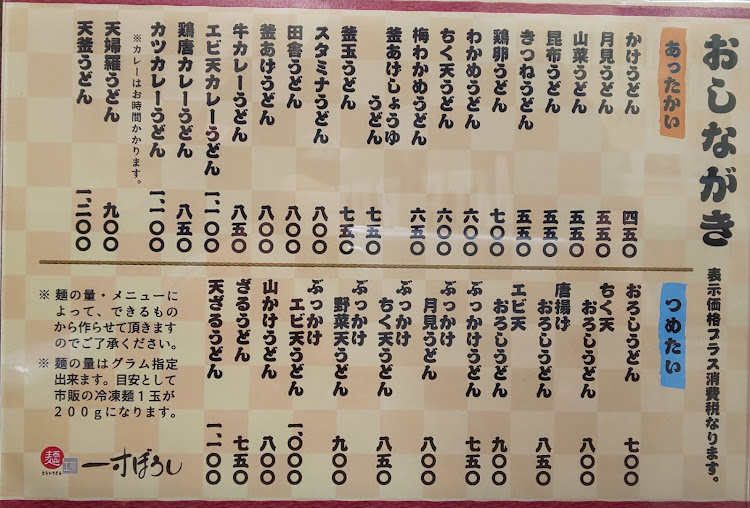 おしながき
表示価格プラス消費税なります。
あったかい
かけうどん 四五〇
月見うどん 五五〇
山菜うどん 五五〇
昆布うどん 五五〇
きつねうどん 五五〇
鶏卵うどん 七〇〇
わかめうどん 六〇〇
ちく天うどん 六〇〇
梅わかめうどん 六五〇
釜あげしょうゆ
うどん 七五〇
釜玉うどん 七五〇
スタミナうどん 八〇〇
田舎うどん 八〇〇
釜あげうどん 八〇〇
牛カレーうどん 八五〇
エビ天カレーうどん 一、一〇〇
鶏唐カレーうどん 八五〇
カツカレーうどん 一、一〇〇
※カレーはお時間かかります。
天婦羅うどん 九〇〇
天釜うどん 一、二〇〇
つめたい
おろしうどん 七〇〇
ちく天
おろしうどん 八〇〇
唐揚げ
おろしうどん 八五〇
エビ天
おろしうどん 九〇〇
ぶっかけうどん 七五〇
ぶっかけ
月見うどん 八〇〇
ぶっかけ
ちく天うどん 八五〇
ぶっかけ
野菜天うどん 九〇〇
ぶっかけ
エビ天うどん 一、〇〇〇
山かけうどん 八〇〇
ざるうどん 七五〇
天ざるうどん 一、一〇〇
※ 麺の量・メニューに
よって、できるもの
から作らせて頂きます
のでご了承ください。
※ 麺の量はグラム指定
出来ます。目安として
市販の冷凍麺１玉が
２００ｇになります。
麺 工房 一寸ぼうし